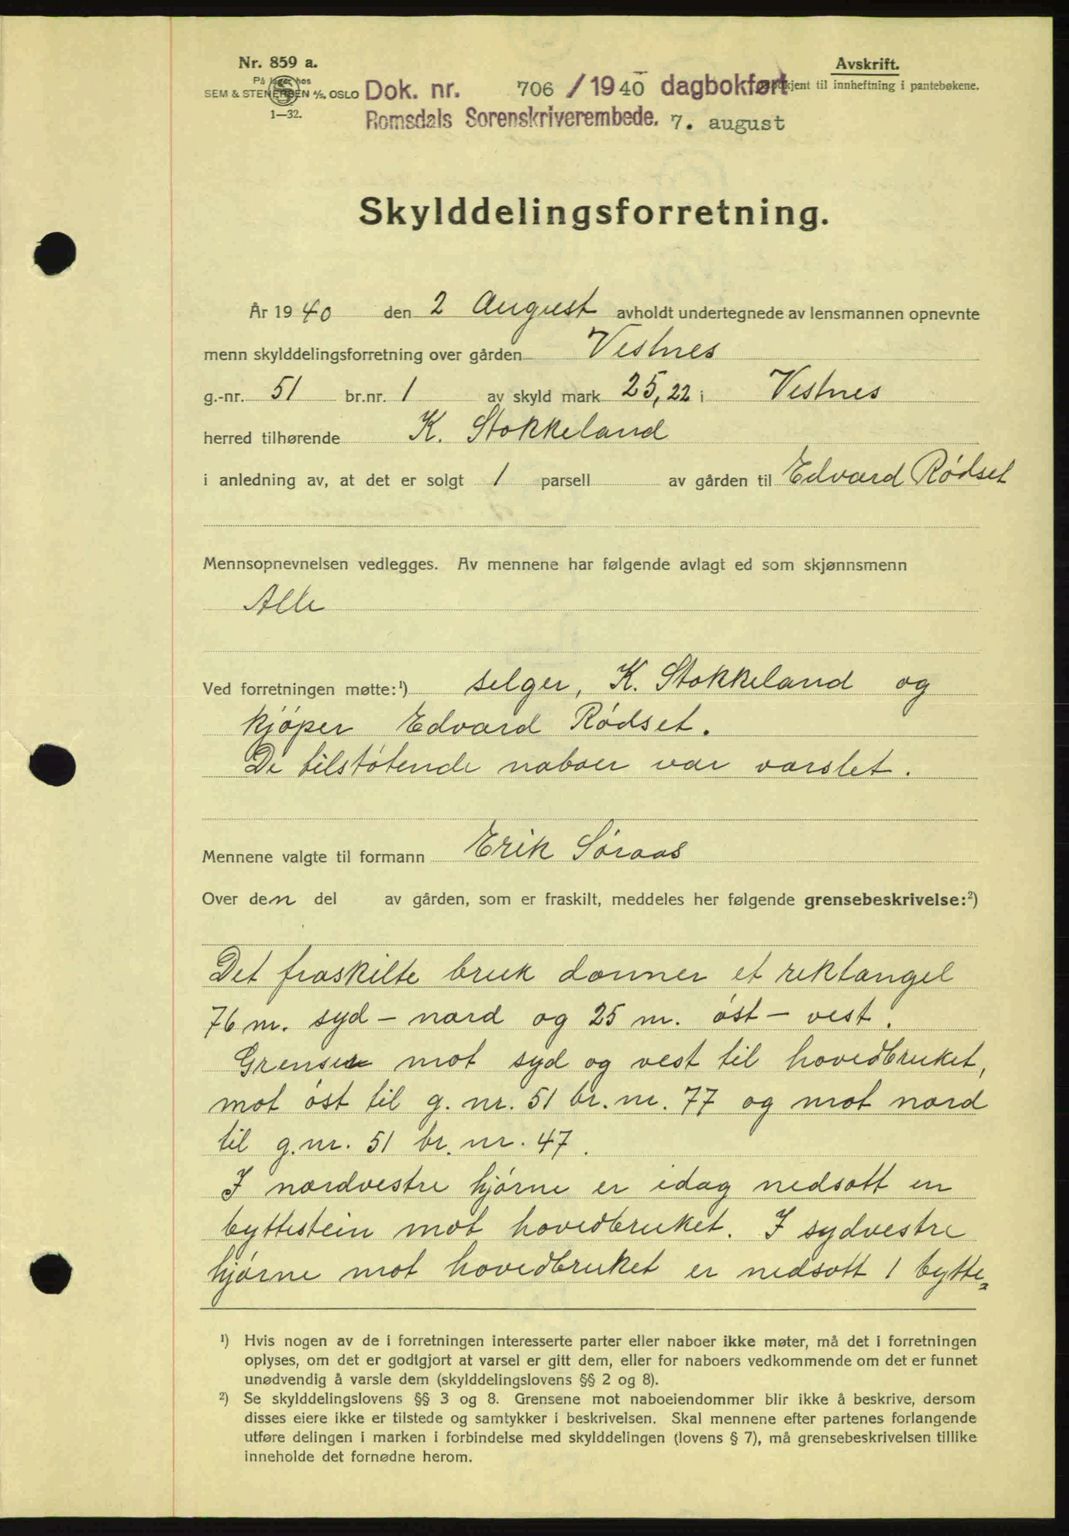 Nr. 859 a.
På lager hos
SEM & STENERSEN A/S, OSLO
1—32.
Avskrift.
Godkjent til innheftning i pantebøkene.
Dok. nr. 706 / 1940 dagbokført
Romsdals Sorenskriverembede. 7. august
Skylddelingsforretning.
År 1940 den 2 August avholdt undertegnede av lensmannen opnevnte
menn skylddelingsforretning over gården Vestnes
g.-nr. 51 br.nr. 1 av skyld mark 25,22 i Vestnes
herred tilhørende K. Stokkeland
i anledning av, at det er solgt 1 parsell av gården til Edvard Rødset
Mennsopnevnelsen vedlegges. Av mennene har følgende avlagt ed som skjønnsmenn
Alle
Ved forretningen møtte:¹) selger, K. Stokkeland og
kjøper Edvard Rødset.
De tilstøtende naboer var varslet.
Mennene valgte til formann Erik Søraas
Over den del av gården, som er fraskilt, meddeles her følgende grensebeskrivelse:²)
Det fraskilte bruk danner et rektangel
76 m. syd – nord og 25 m. øst – vest.
Grenser mot syd og vest til hovedbruket,
mot øst til g. nr. 51 br. nr. 77 og mot nord
til g.nr. 51 br. nr. 47.
I nordvestre hjørne er idag nedsatt en
byttestein mot hovedbruket. I sydvestre
hjørne mot hovedbruket er nedsatt 1 bytte=
¹) Hvis nogen av de i forretningen interesserte parter eller naboer ikke møter, må det i forretningen
oplyses, om det er godtgjort at varsel er gitt dem, eller for naboers vedkommende om det er funnet
unødvendig å varsle dem (skylddelingslovens §§ 2 og 8).
²) Se skylddelingslovens §§ 3 og 8. Grensene mot naboeiendommer blir ikke å beskrive, dersom
disses eiere ikke er tilstede og samtykker i beskrivelsen. Skal mennene efter partenes forlangende
utføre delingen i marken i forbindelse med skylddelingen (lovens § 7), må grensebeskrivelsen tillike
inneholde det fornødne herom.